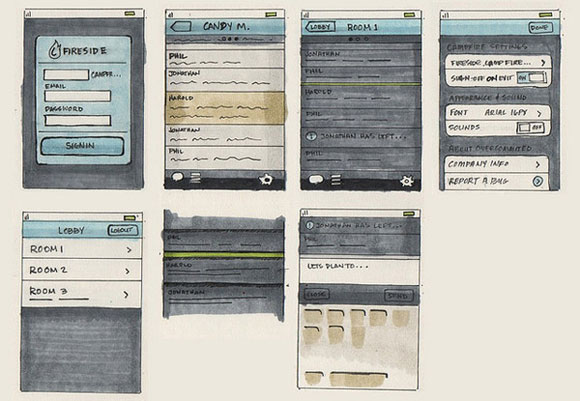 FIRESIDE
CAMPF...
EMAIL
PASSWORD
SIGN IN
CANDY M.
PHIL
JONATHAN
HAROLD
JONATHAN
PHIL
LOBBY
ROOM 1
JONATHAN
PHIL
HAROLD
PHIL
JONATHAN HAS LEFT...
PHIL
DONE
CAMPFIRE SETTINGS
FIRESIDE.CAMPFIRE...
SIGN-OFF ON EXIT
OFF
APPEARANCE & SOUND
FONT ARIAL 16PX
SOUNDS
OFF
ABOUT OVERCOMMITTED
COMPANY INFO
REPORT A BUG
LOBBY
LOGOUT
ROOM 1
ROOM 2
ROOM 3
PHIL
HAROLD
JONATHAN
JONATHAN HAS LEFT...
PHIL
LETS PLAN TO...
CLOSE
SEND